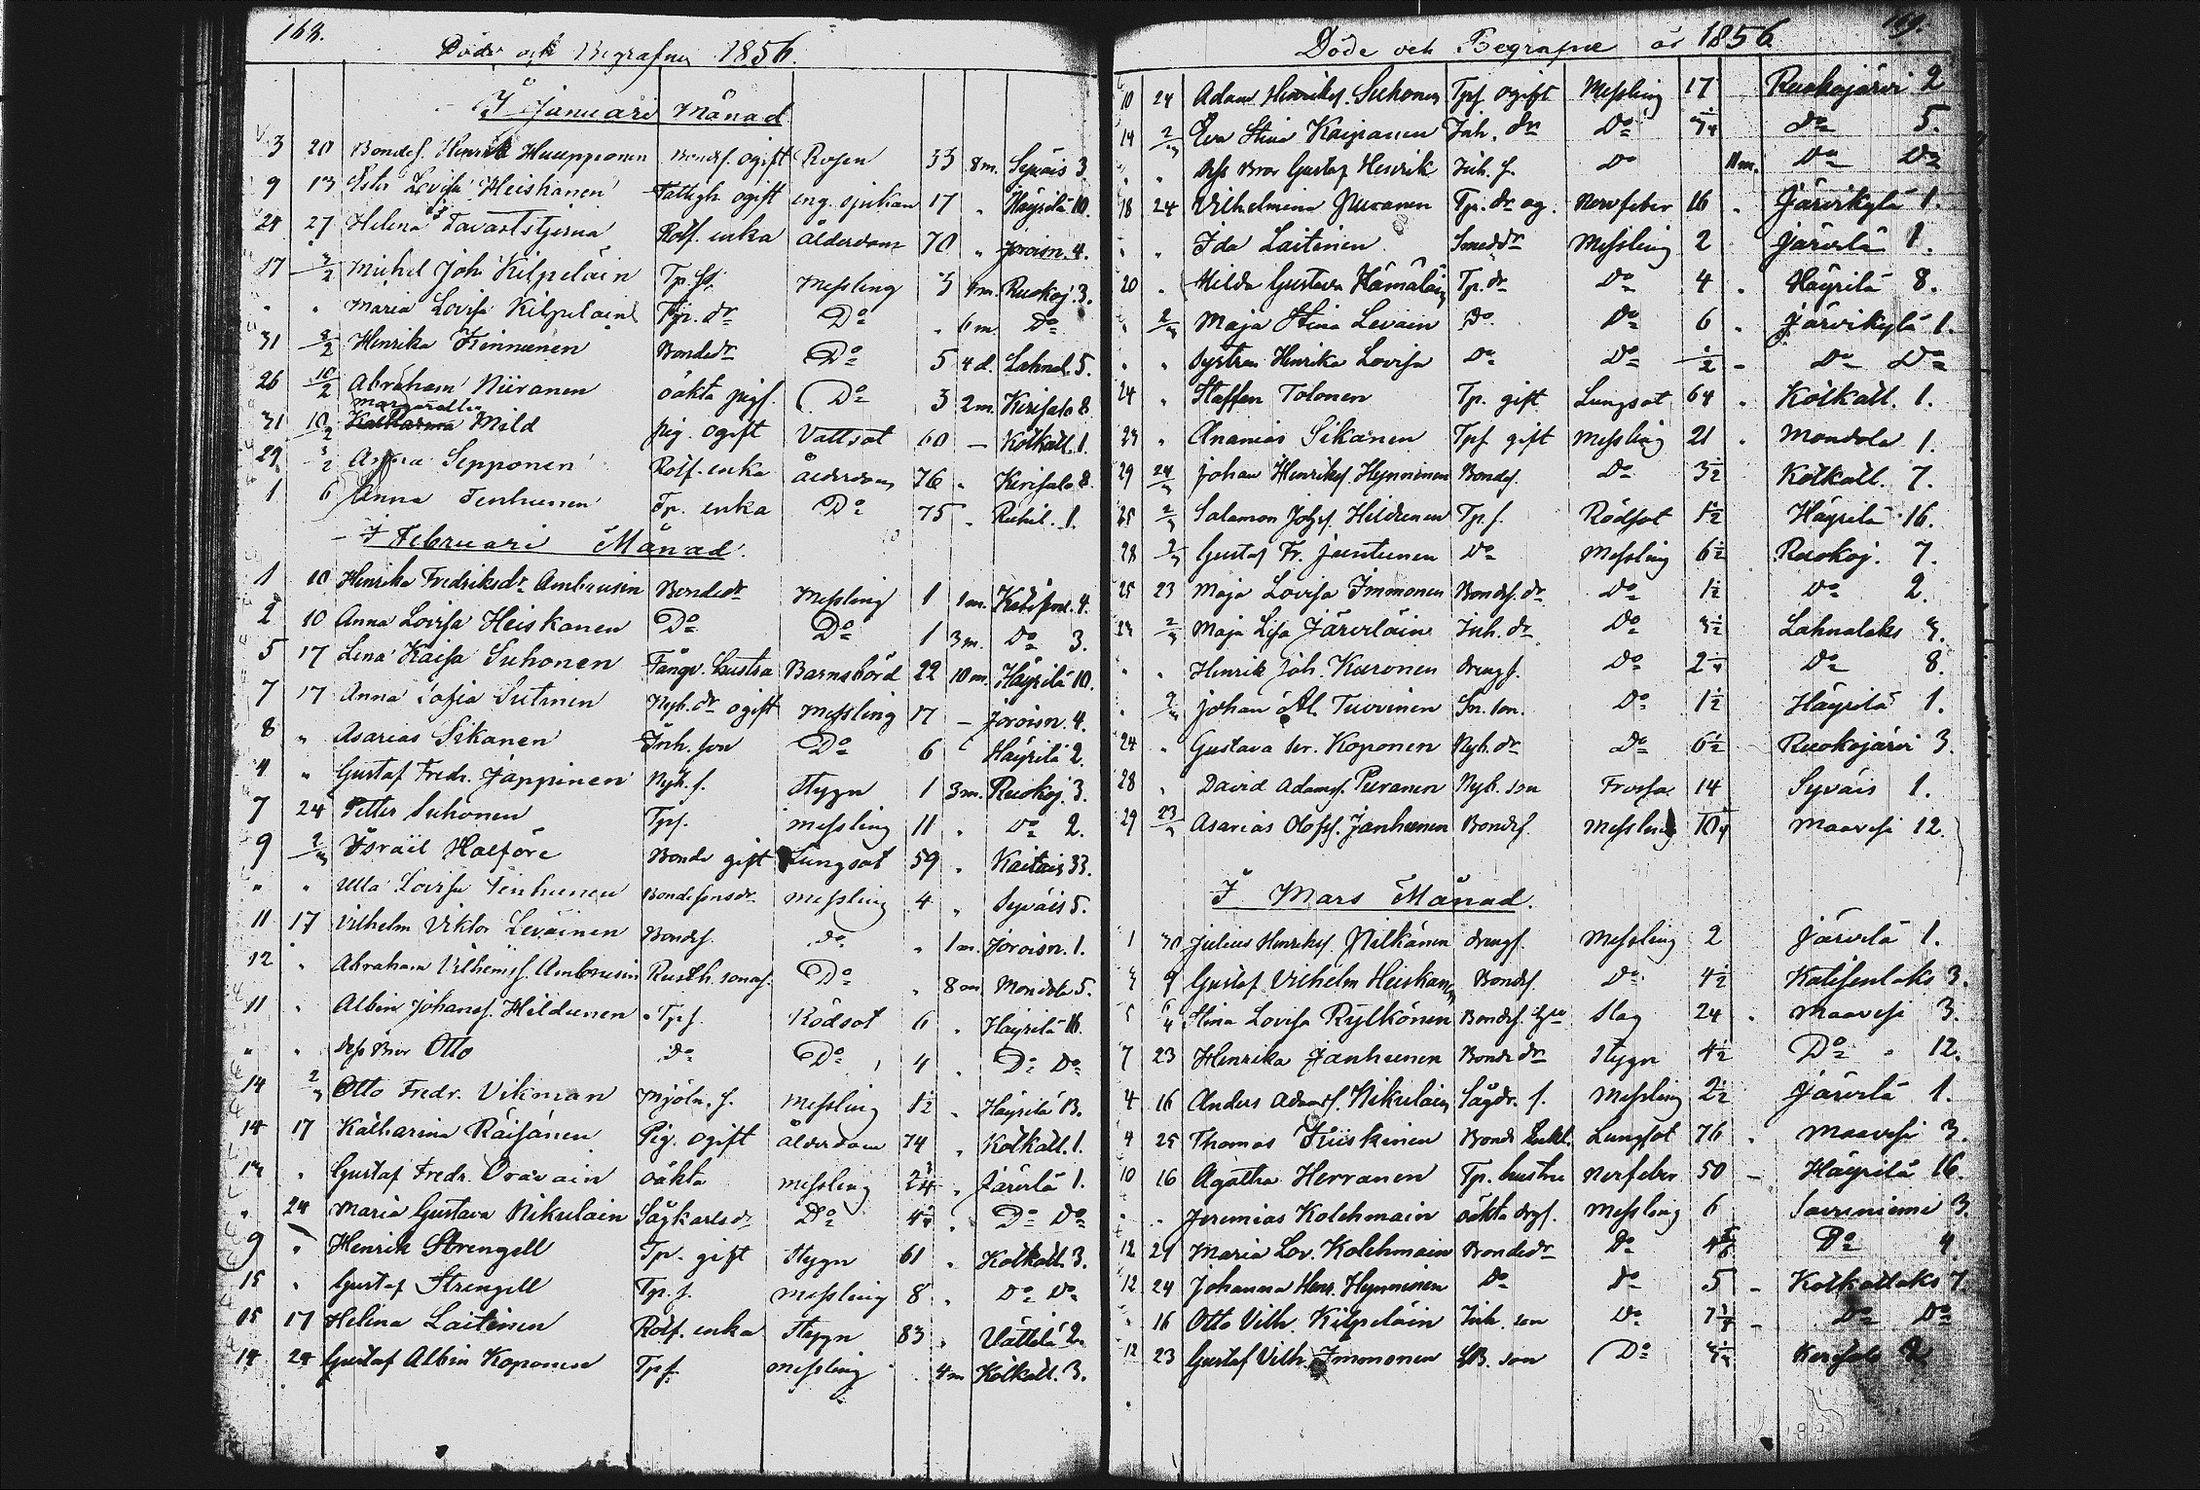 168.
Döde och Begrafne 1856.
I Januari Månad
3 20 Bondes. Henrik Huupponen Bondes. ogift Rosen 33 8m. Syväis 3.
9 13 Ester Lovisa Heiskanen Fattigh. ogift 17 " Häyrilä 10.
24 27 Helena Tavaststjerna Rotf. enka ålderdom 70 " Joroisn. 4.
17 3/2 Michel Joh. Kilpeläin Tp. Messling 3 Ruokoj. 3.
" " Maria Lovisa Kilpeläin Tp. dr Do " 6m Do
31 3/2 Henrika Kinnunen Bondedr Do 5 4 d. Lahnal. 5.
26 10/2 Abraham Niiranen oäkta pigs. Do 3 2m. Kerisalo 8
31 10/2 Margaretha Mild pig. ogift Vattsot 60 – Kotkatl. 1.
29 3/2 Anna Sepponen Rotf. enka ålderdom 76 " Kerisalo 8.
1 6 Anna Tenhunen Tp. enka Do 75 " 1.
I Februari Månad.
1 10 Henrika Fredriksdr Ambrusin Bondedr Messling 1 1m. 4.
2 10 Anna Lovisa Heiskanen Do Do 1 3m. Do 3.
5 17 Lena Kaisa Suhonen Fångv. hustru Barnsbörd 22 10m. Häyrilä 10.
7 17 Anna Sofia Sutinen Nyb. dr ogift Messling 17 – Joroisn. 4.
8 " Asarias Sikanen Inh. son Do 6 Häyrilä 2.
4 " Gustaf Fredr. Jäppinen Nyb. s. Stygn 1 3m. Ruokoj. 3.
7 24 Petter Suhonen Tps. messling 11 " Do 2.
9 2/3 Israël Halfore Bonde gift Lungsot 59 " Kaitais 33.
" " Ulla Lovisa Tenhunen Bondesonsdr. messling 4 " Syväis 5.
11 17 Vilhelm Viktor Leväinen Bondes. do " 1m. Joroisn. 1.
12 " Abraham Vilhelmss. Ambrusin Rusth. sonas. Do " 8m Mondola 5.
11 " Albin Johanss. Hildunen Tps. Rödsot 6 " Häyrilä 16.
" " dess Bror Otto Do Do 4 " Do Do
14 2/3 Otto Fredr. Vikman Mjöln. s. Messling 1½ " Häyrilä 13.
14 17 Katharina Räisänen Pig. ogift ålderdom 74 " Kotkatl. 1.
13 " Gustaf Fredr. Oravain oäkta messling 2¾ " Järvelä 1.
" 24 Maria Gustava Nikulain Sågkarlsdr Do " Do Do
9 " Henrik Strengell Tp. gift Stygn 61 " Kotkatl. 3.
15 " Gustaf Strengell Tp. s. messling 8 " Do Do
15 17 Helena Laitinen Rotf. enka Stygn 83 " Vättilä 2.
14 24 Gustaf Albin Koponen Tps. messling 4m Kotkatl. 3.
169.
Döde och Begrafne år 1856.
10 24 Adam Henriks. Suhonen Tps ogift Messling 17 Ruokojärvi 2
14 2/3 Eva Stina Kaipanen Inh. dr Do Do 5.
" " dess Bror Gustaf Henrik Inh. s. Do 11m. Do Do
18 24 Vilhelmina Puranen Tp. dr og. Nervfeber 16 " Järvikylä 1.
" " Ida Laitinen Smeddr Messling 2 Järvelä 1.
20 " Hilda Gustava Hämäläin Tp. dr Do 4 " Häyrilä 8.
" 2/3 Maja Stina Leväin Do Do 6 " Järvikylä 1.
" " Systren Henrika Lovisa Do Do ½ – Do Do
24 " Staffan Tolonen Tp. gift Lungsot 64 " Kotkatl. 1.
23 " Ananias Sikanen Tps gift Messling 21 " Mondola 1.
29 24/3 Johan Henriks. Hynninen Bondes. Do 3½ Kotkatl. 7.
25 2/3 Salamon Johss. Hildunen Tp. s. Rödsot 1½ Häyrilä 16.
28 Gustaf Fr. Juntunen Do Messling 6½ Ruokoj. 7.
25 23 Maja Lovisa Immonen Bonds. dr Do 1½ Do 2.
23 2/3 Maja Lisa Järveläin Inh. dr Do 3½ Lahnalaks 3.
" " Henrik Joh. Kuronen drengs. Do Do 8.
" 2/3 Johan Al. Tuovinen Sn. son. Do 1½ Häyrilä 1.
24 " Gustava Koponen Nyb. dr Do 6½ Ruokojärvi 3.
28 " David Adams. Puranen Nyb. son Frossa 14 Syväis 1.
29 23/3 Asarias Olofss. Janhunen Bondes. Messling Maavesi 12.
I Mars Månad.
1 30 Julius Henriks. Pitkänen drengs. Messling 2 Järvelä 1.
9 Gustaf Vilhelm Heiskanen Bondes. Do 4½ Katisenlaks 3.
5 6/4 Stina Lovisa Rylkönen Bondes. Slag 24 " Maavesi 3.
7 23 Henrika Janhunen Bonde dr Stygn 4½ Do " 12.
4 16 Anders Adams. Nikulain Sågdr. s. Messling 2½ Järvelä 1.
9 25 Thomas Tiiskinen Bonde Enkl. Lungsot 76 " Maavesi 3.
10 16 Agatha Herranen Tp. hustru Nerfeber 50 – Häyrilä 16.
" " Jeremias Kolehmain oäkta drgs. Messling 6 Savuniemi 3.
12 21 Maria Lov. Kolehmain Bondedr Do Do 4
12 24 Johanna Henr. Hynninen Do Do 5 – Kotkatlaks 7.
" 16 Otto Vilh. Kilpeläin Inh. son Do Do Do
12 23 Gustaf Vilh. Immonen son Do Kerisalo 2